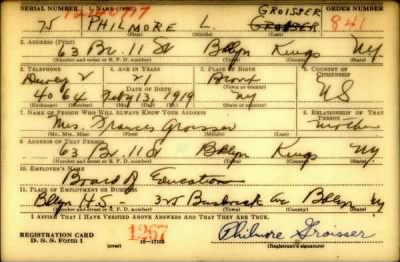 SERIAL NUMBER 1. NAME (Print) GROISSER ORDER NUMBER
75 PHILMORE L. GROISSER 841
(First) (Middle) (Last)
2. ADDRESS (Print)
63 Bv. 11 St Bklyn Kings NY
(Number and street or R. F. D. number) (Town) (County) (State)
3. TELEPHONE 4. AGE IN YEARS 5. PLACE OF BIRTH 6. COUNTRY OF CITIZENSHIP
2 21 Bronx
DATE OF BIRTH (Town or county)
4064 13 1919 NY US
(Exchange) (Number) (Mo.) (Day) (Yr.) (State or country)
7. NAME OF PERSON WHO WILL ALWAYS KNOW YOUR ADDRESS 8. RELATIONSHIP OF THAT PERSON
Mrs. Frances Groisser Mother
(Mr., Mrs., Miss) (First) (Middle) (Last)
9. ADDRESS OF THAT PERSON
63 Bv. 11 St Bklyn Kings NY
(Number and street or R. F. D. number) (Town) (County) (State)
10. EMPLOYER'S NAME
Board of Education
11. PLACE OF EMPLOYMENT OR BUSINESS
Bklyn H.S. - 325 Bushwick Av Bklyn NY
(Number and street or R. F. D. number) (Town) (County) (State)
I AFFIRM THAT I HAVE VERIFIED ABOVE ANSWERS AND THAT THEY ARE TRUE.
REGISTRATION CARD 1267 Philmore Groisser
D. S. S. FORM 1 (over) (Registrant's signature)